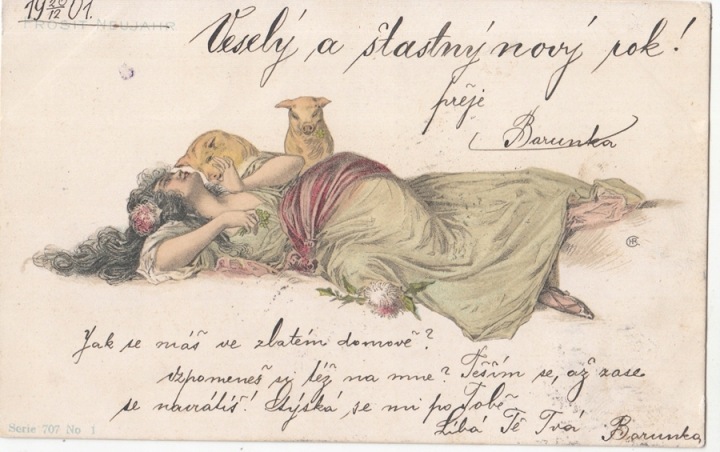 19 29/12 01.
PROSIT NEUJAHR
Veselý a šťastný nový rok!
přeje
Barunka
HR
Jak se máš ve zlatém domově?
vzpomeneš si též na mne? Těším se, až zase
se navrátíš! Stýská se mi po Tobě
Líbá Tě Tvá Barunka
Serie 707 No 1